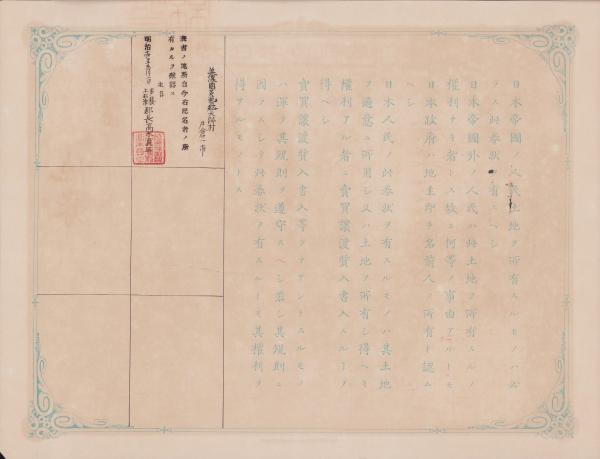 日本帝國ノ人民土地ヲ所有スルモノハ必
ラス此券狀ヲ有スヘシ
日本帝國外ノ人民ハ此土地ヲ所有スルノ
權利ナキ者トス故ニ何等ノ事由アルトモ
日本政府ハ地主即チ名前人ノ所有ト認ム
日本人民ノ此券狀ヲ有スルモノハ其土地
ヲ適意ニ所用シ又ハ土地ヲ所有シ得ヘキ
權利アル者ニ賣買讓渡質入書入スルヿヲ
得ヘシ
賣買讓渡質入書入等ヲナサントスルモノ
ハ渾テ其規則ヲ遵守スヘシ若シ其規則ニ
因ラスシテ此券狀ヲ有スルトモ其權利ヲ
得サルモノトス
戸倉
表書ノ地所自今右記名者ノ所
有タルヲ確認ス
明治
郡長高木